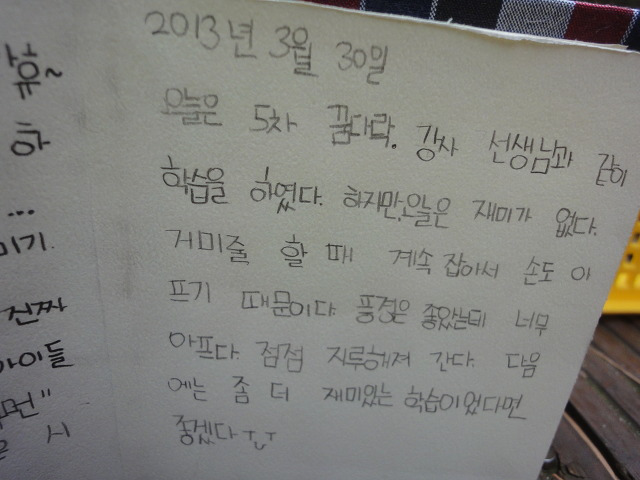 휴~
하
...
미기.
진짜
아이들
시
2013년 3월 30일
오늘은 5차 꿈다락. 강사 선생님과 같이
학습을 하였다. 하지만, 오늘은 재미가 없다.
거미줄 할 때 계속 잡아서 손도 이
프기 때문이다. 풍경은 좋았는데 너무
아프다. 점점 지루해져 간다. 다음
에는 좀 더 재미있는 학습이었다면
좋겠다ㅜㅜ